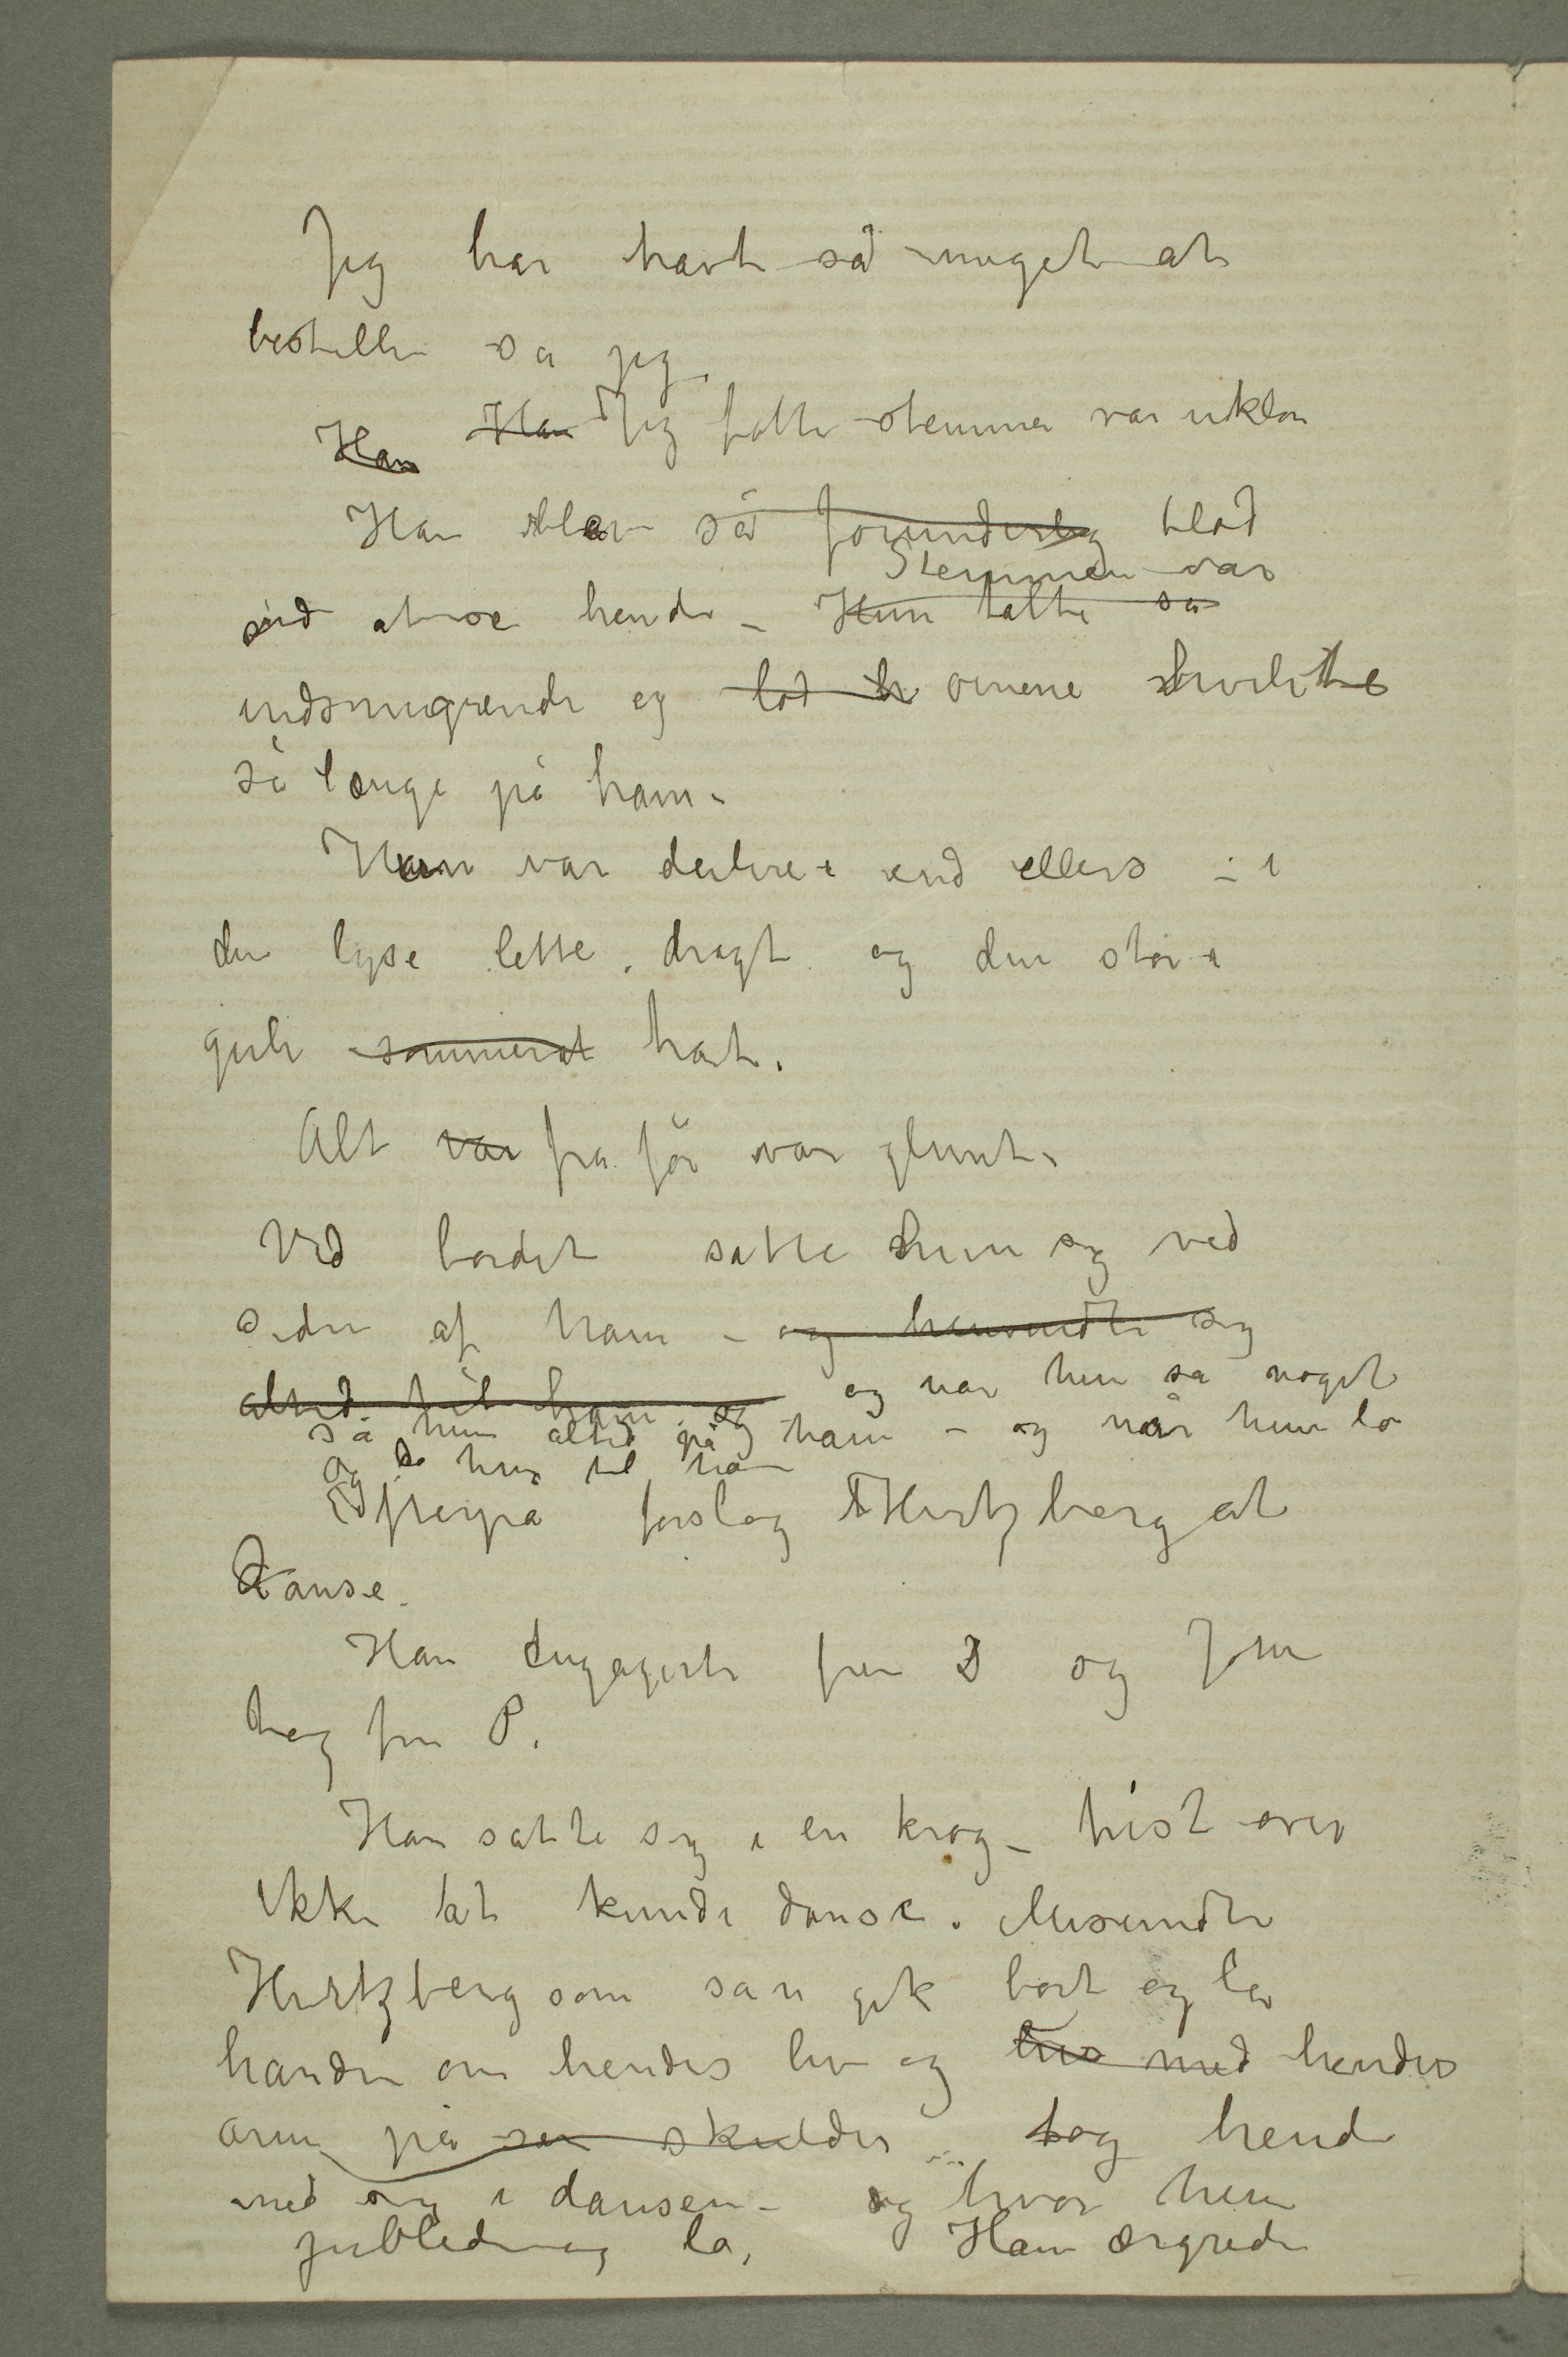 Jeg har havt så meget at
bestille sa jeg.
Han Han Jeg følte stemmen var uklar
Han blev så forunderlig blød
ved at se hende – Hun talte så
Stemmen var
indsmigrende og lod h øinene hvilte
så længe på ham.
Hun var deiligere end ellers – i
den lyse lette dragt og den store
gule sommerat hat.
Alt var fra før var glemt.
Ved bordet satte hun sig ved
siden af ham – og henvendte sig
altid til ham og og når hun sa noget
så hun altid på ham – og når hun lo
og lo hun til ham
Efterpå forslog Hertzberg at
danse.
Han engagerte fru D og John
tog fru P.
Han satte sig i en krog – trist over
ikke at kunde danse. Misundte
Hertzberg som sån gik bort og la
hånden om hendes liv og hendes
arm på sin skulder tog hende
med sig i dansen – og hvor hun
jublede og lo. Han ærgrede